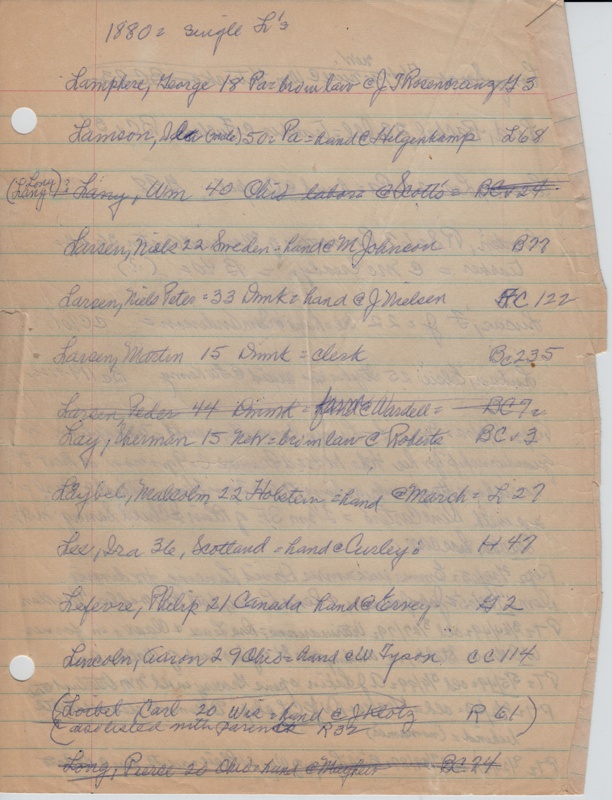 1880 = Single L's
Lamphere, George 18 Pa = broinlaw @ J. T Rosencrang G 3
Lamson, Ida (wido) 50 = Pa = hand @ Hilgenkamp L 68
(Long Lang)? Lany, Wm 40 Ohio labor @ Scotts = BC v 24
Larsen, Niels 22 Sweden = hand @ M Johnson B 77
Larsen, Niels Peter = 33 Dnmk = hand @ J Nielsen C 122
Larsen, Morten 15 Dnmk = clerk Bc 235
Larsen, Peder 44 Dnmk = farm @ Wardell = BC 7
Lay, Sherman 15 Neb = broinlaw @ Roberts BC v 3
Laybel, Malcolm 22 Holstein = hand @ March = L 27
Lee, Ira 36, Scotland = hand @ Curley = H 47
Lefevre, Philip 21 Canada hand @ Ervey = G 2
Lincoln, Aaron 29 Ohio = hand @ W Tyson CC 114
(Loebel Carl 20 Wis = hand @ J Klotz R 61)
(also listed with parents R 32
Long, Pierce 20 Ohio = hand @ BC 24